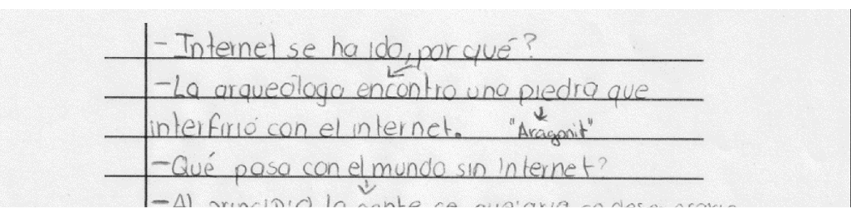 - Internet se ha ido, por qué?
- La arqueóloga encontro una piedra que
interfirió con el internet. "Aragonit"
- Qué pasa con el mundo sin Internet?
- Al principio la gente se